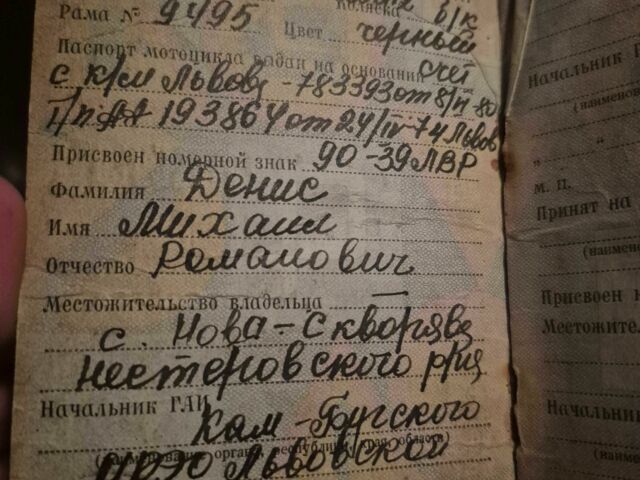 Коляска б/к
Рама № 9495 Цвет черный
Паспорт мотоцикла выдан на основании счет
с к/м Львов, -783393 от 8/II-80
т/п АА 193864 от 24/IV-74 Львов
Присвоен номерной знак 90-39 ЛВР
Фамилия Денис
Имя Михаил
Отчество Романович
Местожительство владельца —
с. Нова-Скворява
Нестеровского р/на
Начальник ГАИ
Кам-Бугского
(наименование органа, республики, края, области)
Львовской
Начальник
(наименов
м. п.
Принят на
(наимен
Присвоен н
Местожител
Начальник
(наимен